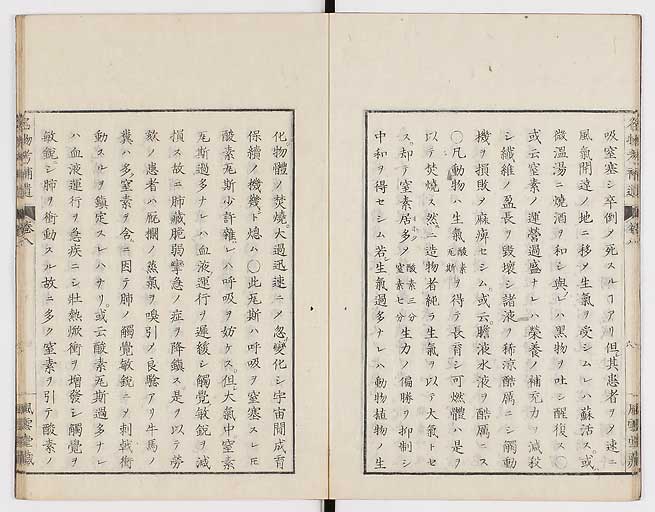 吸窒塞シ卒倒メ死スルヿアリ但其患者ヲメ速ニ
風氣開達ノ地ニ移メ生氣ヲ受シムレハ蘇活ス。或
微溫湯ニ燒酒ヲ和シ與レハ黑物ヲ吐シ醒復ス〇
或云窒素ノ運營過盛ナレハ榮養ノ補充力ヲ減殺
シ纖維ノ盈長ヲ毀壞シ諸液ヲ稀涼酷厲ニシ觸動
機ヲ損敗メ麻痺セシム。或云膽液水液ヲ酷厲ニス
〇凡動物ハ生氣酸素瓦斯ヲ得テ長育シ可燃體ハ是ヲ
以テ焚燒ス然ニ造物者純ラ生氣ヲ以テ大氣トセ
ス。却テ窒素居多ノ酸素三分窒素七分生力ノ偏勝ヲ抑制シ
中和ヲ得セシム若生氣過多ナレハ動物植物ノ生
化物體ノ焚燒。大過迅速ニメ忽變化シ宇宙間成育
保續ノ機幾ト熄ハ〇此瓦斯ハ呼吸ヲ窒塞スレ𪜈
酸素瓦斯少許雜レハ呼吸ヲ妨ケス。但大氣中窒素
瓦斯過多ナレハ血液運行ヲ遲緩シ觸覺敏銳ヲ減
損ス故ニ肺藏脆弱攣急ノ症ヲ降鎮ス是ヲ以テ勞
欬ノ患者ハ厩欄ノ蒸氣ヲ嗅引メ良驗アリ牛馬ノ
糞ハ多窒素ヲ含ニ因テ肺ノ觸覺敏銳ニメ刺戟衝
動スルヲ鎮定スレハナリ。或云酸素瓦斯過多ナレ
ハ血液運行ヲ急疾ニシ壯熱焮衝ヲ增發シ觸覺ヲ
敏銳シ肺ヲ衝動スル故ニ多ク窒素ヲ引テ酸素ノ
名物考補遺
卷八
風雲堂藏